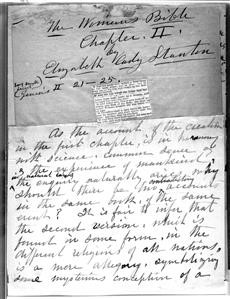 The Woman's Bible
Chapter II.
by
Elizabeth Cady Stanton
Genesis II 21-25.
As the account of the creation
in the first chapter, is in harmony
with science, common sense,
& the experience of mankind
in natural laws,
the enquiry naturally arises, why
should there be two contradictory accounts
in the same book, of the same
event? It is fair to infer that
the second version, which is
found in some form, in the
different religions of all nations,
is a mere allegory, symbolizing
some mysterious conception of a